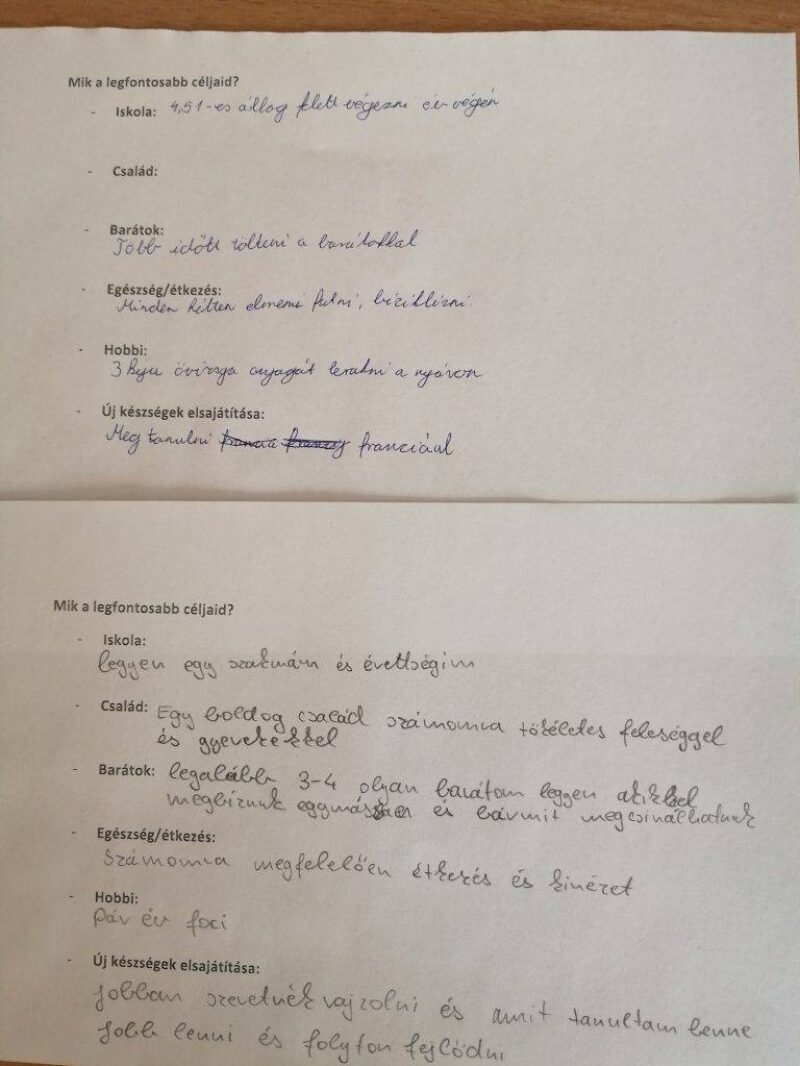 Mik a legfontosabb céljaid?
- Iskola: 4,51-es átlag felett végezni év végén
- Család:
- Barátok:
Több időtt tölteni a barátokkal
- Egészség/étkezés:
Minden héten elmenni futni, biciklizni
- Hobbi:
3 kyu övvizsga anyagát leralni a nyáron
- Új készségek elsajátítása:
Meg tanulni franciáúl
Mik a legfontosabb céljaid?
- Iskola:
leggyen egy szakmám és évettségim
- Család: Egy boldog család számomra tökéletes feleséggel
és gyerekekkel
- Barátok: legalább 3-4 olyan barátom leggyen akikkel
megbizunk eggymásban és bármit megcsinálhatunk
- Egészség/étkezés:
Számomra megfelelően étkezés és kinézet
- Hobbi:
Pár év foci
- Új készségek elsajátítása:
Jobban szeretnék rajzolni és amit tanultam benne
Jobb lenni és folyton fejlődni